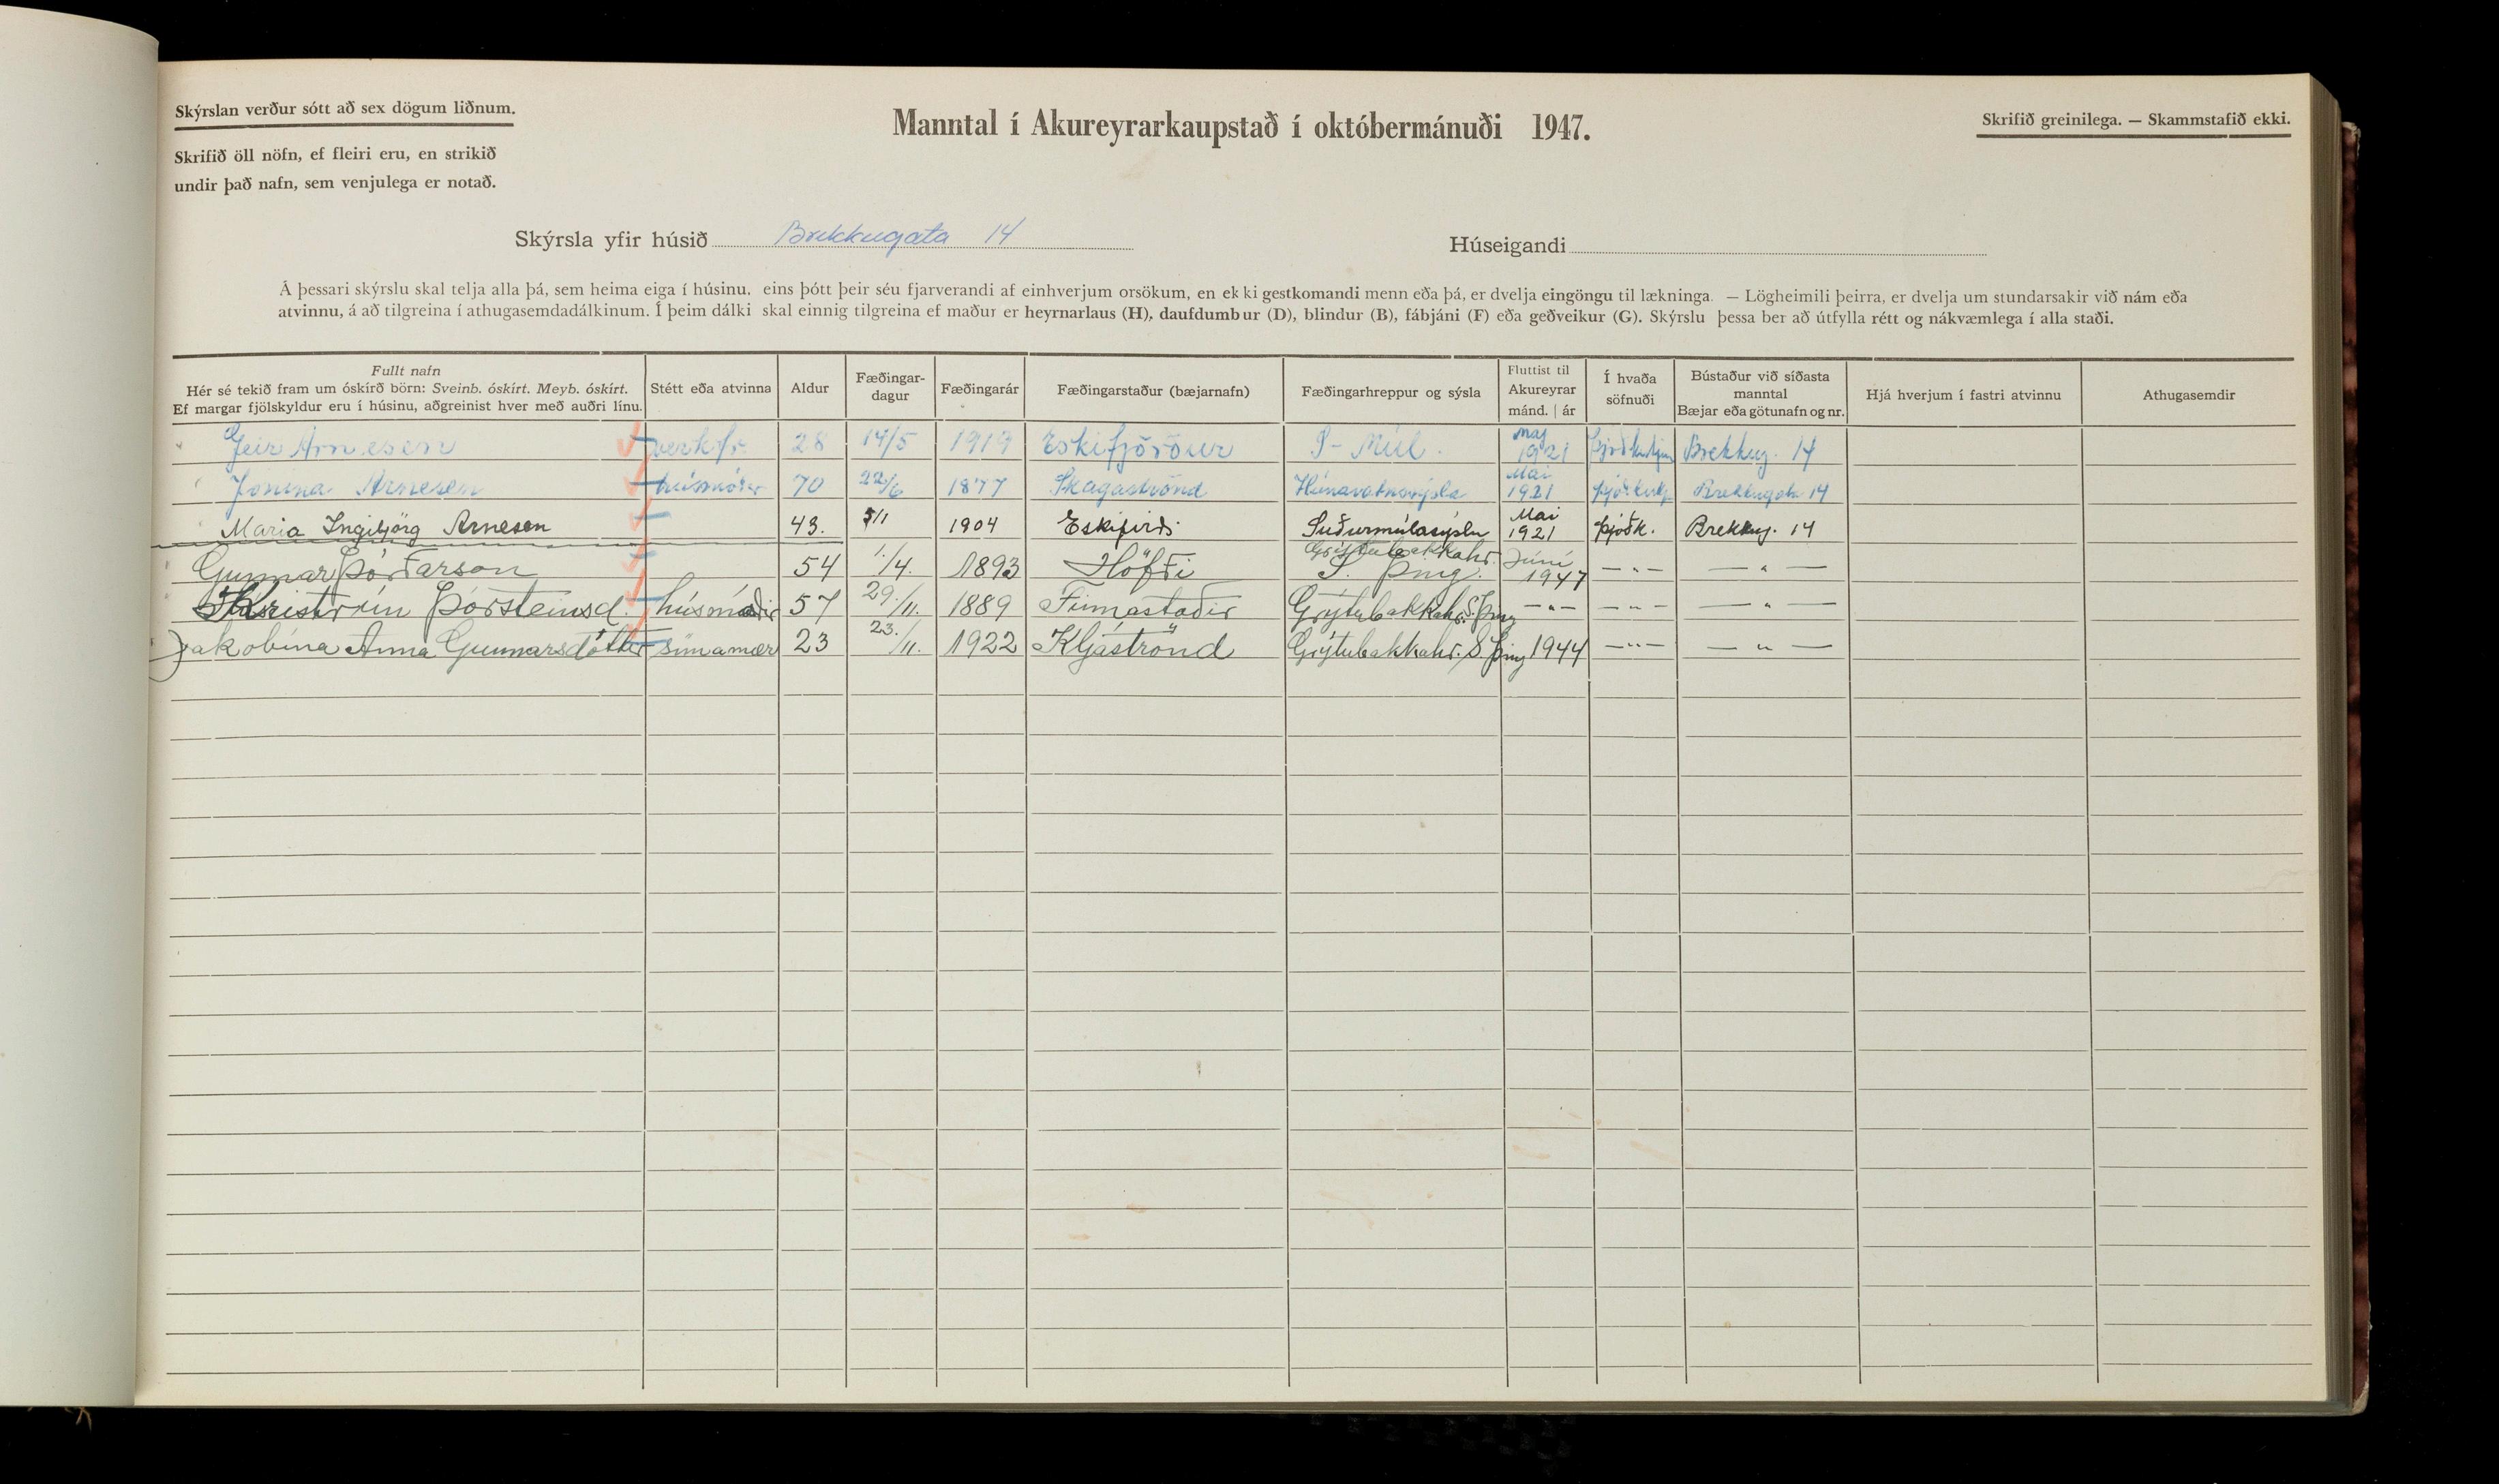 Skýrslan verður sótt að sex dögum liðnum.
Manntal í Akureyrarkaupstað í októbermánuði 1947.
Skrifið greinilega. — Skammstafið ekki.
Skrifið öll nöfn, ef fleiri eru, en strikið
undir það nafn, sem venjulega er notað.
Skýrsla yfir húsið Brekkugata 14 Húseigandi
Á þessari skýrslu skal telja alla þá, sem heima eiga í húsinu, eins þótt þeir séu fjarverandi af einhverjum orsökum, en ekki gestkomandi menn eða þá, er dvelja eingöngu til lækninga. — Lögheimili þeirra, er dvelja um stundarsakir við nám eða
atvinnu, á að tilgreina í athugasemdadálkinum. Í þeim dálki skal einnig tilgreina ef maður er heyrnarlaus (H), daufdumbur (D), blindur (B), fábjáni (F) eða geðveikur (G). Skýrslu þessa ber að útfylla rétt og nákvæmlega í alla staði.
Fullt nafn
Hér sé tekið fram um óskírð börn: Sveinb. óskírt. Meyb. óskírt.
Ef margar fjölskyldur eru í húsinu, aðgreinist hver með auðri línu.
Stétt eða atvinna
Aldur
Fæðingar-
dagur
Fæðingarár
Fæðingarstaður (bæjarnafn)
Fæðingarhreppur og sýsla
Fluttist til
Akureyrar
mánd. | ár
Í hvaða
söfnuði
Bústaður við síðasta
manntal
Bæjar eða götunafn og nr.
Hjá hverjum í fastri atvinnu
Athugasemdir
Geir Arnesen verkfr 28 14/5 1919 Eskifjörður S-Múl. maj 1921 Brekkug. 14
Jónína Arnesen húsmóðir 70 22/6 1877 Skagaströnd Húnavatnssýsla Mai 1921 þjóðkirkj Brekkugata 14
Maria Ingibjörg Arnesen 43. 1904 Eskifirði Suðurmúlasýslu Mai 1921 þjóðk. Brekkug. 14
Gunnar Þórðarson 54 1./4. 1893 Höfði Grýtubakkahr. S. Þing. Júní 1947 —"— —"—
Kristín Þórsteinsd. húsmóðir 57 29./11. 1889 Finnastaðir Grýtubakkahr. S. Þing —"— —"— —"—
Jakobína Anna Gunnarsdóttir símamær 23 23./11. 1922 Kljáströnd Grýtubakkahr. S. Þing 1944 —"— —"—